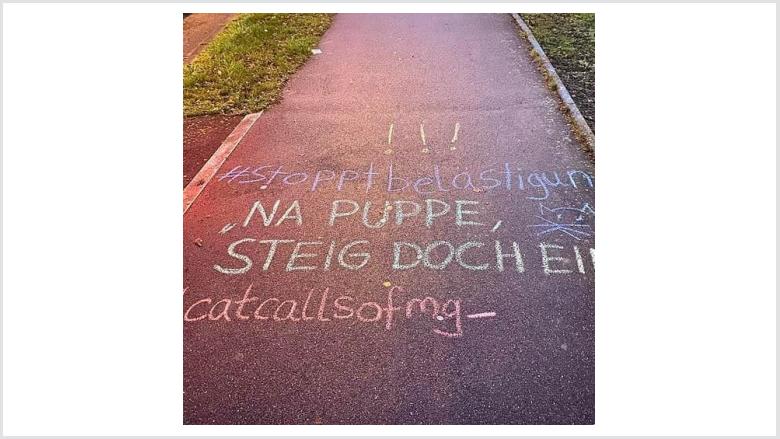 ! ! !
#Stopptbelästigun
„NA PUPPE,
STEIG DOCH EIN
catcallsofmg_